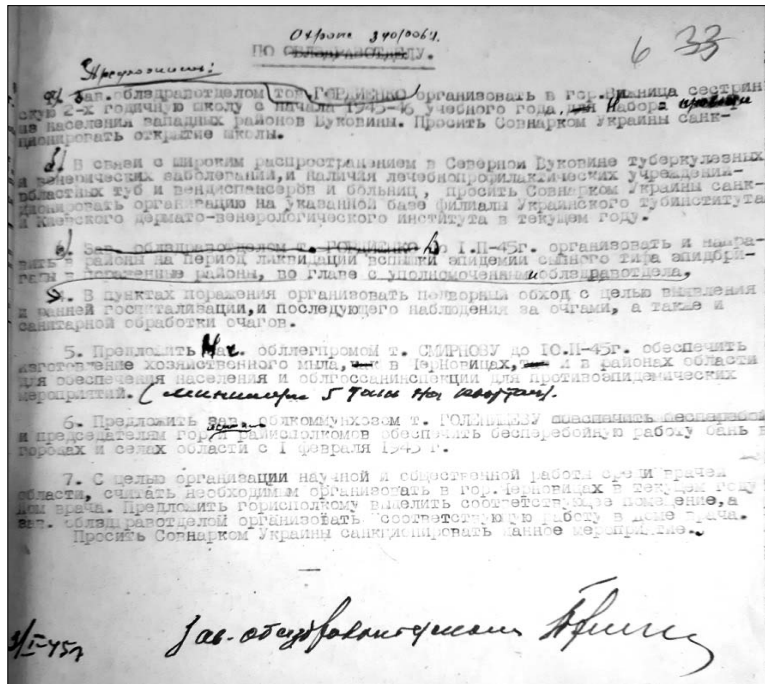 Охрана здоровья.
6 33
ПО ОБЛЗДРАВОТДЕЛУ.
Предложить:
а/ Зав. облздравотделом тов ГОРДИЕНКО организовать в гор. сестрин-
скую 2-х годичную школу с начала 1945-46 учебного года, для набора
из населения западных районов Буковины. Просить Совнарком Украины санк-
ционировать открытие школы.
В связи с широким распространением в Северной Буковине туберкулезных
и венерических заболеваний, и наличия лечебнопрофилактических учреждений-
областных туб и вендиспансеров и больниц, просить Совнарком Украины санк-
ционировать организацию на указанной базе филиалы Украинского тубинститута
и Киевского дермато-венерологического института в текущем году.
в/ Зав. облздравотделом т. ГОРДИЕНКО до I.II-45г. организовать и напра-
вить в районы на период ликвидации вспышки эпидемии сыпного тифа эпидбри-
гады в пораженные районы, во главе с уполномоченными облздравотдела,
4. В пунктах поражения организовать подворный обход с целью выявления
и ранней госпитализации, и последующего наблюдения за очгами, а также и
санитарной обработки очагов.
5. Предложить Нач. обллегпромом т. СМИРНОВУ до IO.II-45г. обеспечить
изготовление хозяйственного мыла, как в Черновицах, так и в районах области
для обеспечения населения и облгоссанинспекции для противоэпидемических
мероприятий. (минимум 5 тонн на квартал).
6. Предложить зав. облкоммунхозом т. ГОЛЕНИЩЕВУ обеспечить бесперебой
и председателям гор. и райисполкомов обеспечить бесперебойную работу бань в
городах и селах области с I февраля 1945 г.
7. С целью организации научной и общественной работы среди врачей
области, считать необходимым организовать в гор.Черновицах в текущем году
дом врача. Предложить горисполкому выделить соответствующее помещение, а
зав. облздравотделом организовать соответствующую работу в доме врача.
Просить Совнарком Украины санкционировать данное мероприятие.
Зав. облздравотделом
I-45г